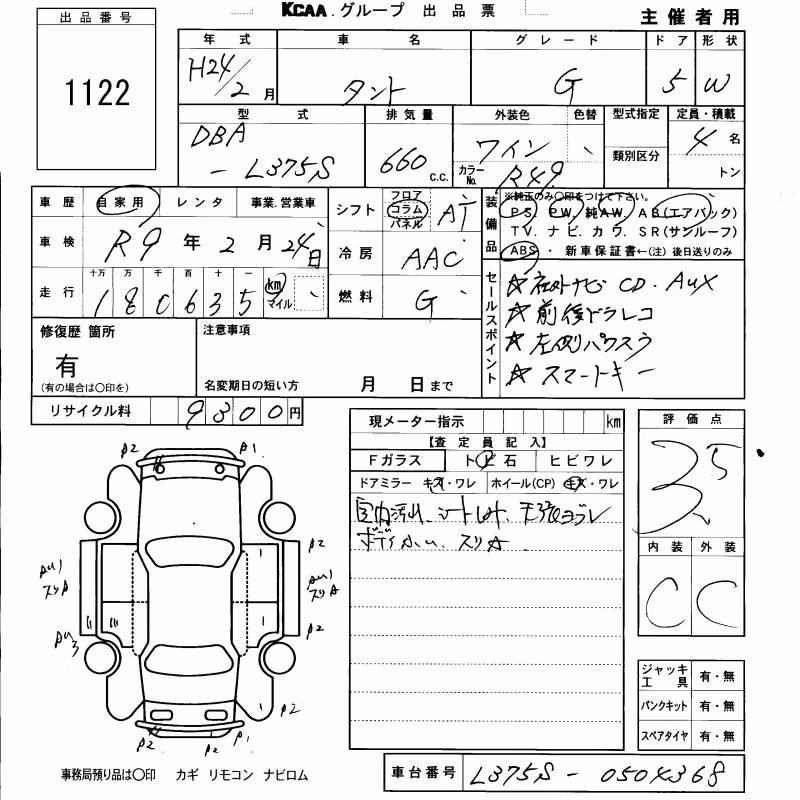 KCAA.グループ 出品票
主催者用
出品番号
1122
年式 車名 グレード ドア 形状
H24/2月 タント G 5 W
型式 排気量 外装色 色替 型式指定 定員・積載
DBA
-L375S 660 c.c. ワイン カラーNo. R49 類別区分 4名
トン
車歴 自家用 レンタ 事業.営業車
シフト フロア コラム パネル AT
装備品 ※純正のみ〇印をつけて下さい。
PS, PW, 純AW, AB(エアバック)
TV. ナビ. カワ. SR(サンルーフ)
ABS・ 新車保証書←(注) 後日送りのみ
車検 R9年2月24日
冷房 AAC
走行 十万 万 千 百 十 一
180635 km マイル
燃料 G
セールスポイント
☆社外ナビ CD. AUX
☆前後ドラレコ
☆左側パワスラ
☆スマートキー
修復歴 箇所
有
(有の場合は〇印を)
注意事項
名変期日の短い方 月 日まで
リサイクル料 9300円
現メーター指示 km
【査定員記入】
Fガラス トビ石 ヒビワレ
ドアミラー キズ・ワレ ホイール(CP) キズ・ワレ
室内汚れ. シートシミ. 天張ヨゴレ
ボディ小キズ. スリA
評価点
3.5
内装 外装
C C
A2 A1
A2
AU1
スリA
AU1
スリA
AU3
A2
A2
A2 A2 A1
ジャッキ工具 有・無
パンクキット 有・無
スペアタイヤ 有・無
事務局預り品は〇印 カギ リモコン ナビロム
車台番号 L375S - 0504368